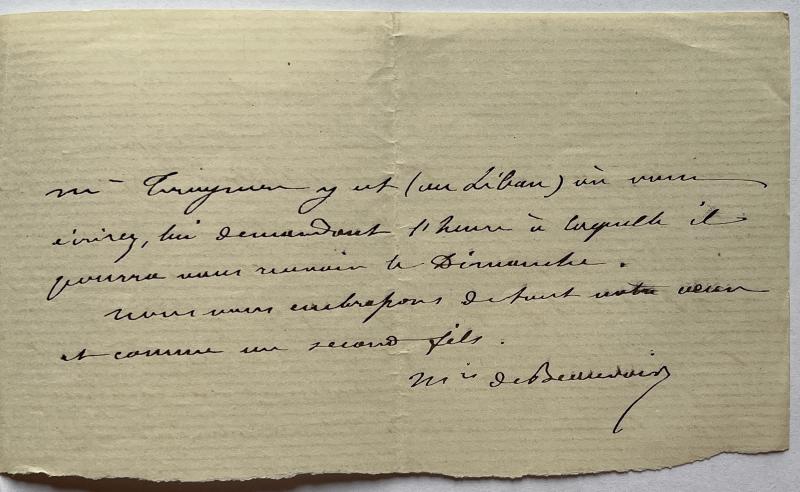 Mr y est (au Liban) où vous
écrirez, lui demandant l'heure à laquelle il
pourra vous revoir le Dimanche.
Nous vous embrassons de tout notre cœur
et comme un second fils.
Mis de Beauvoir